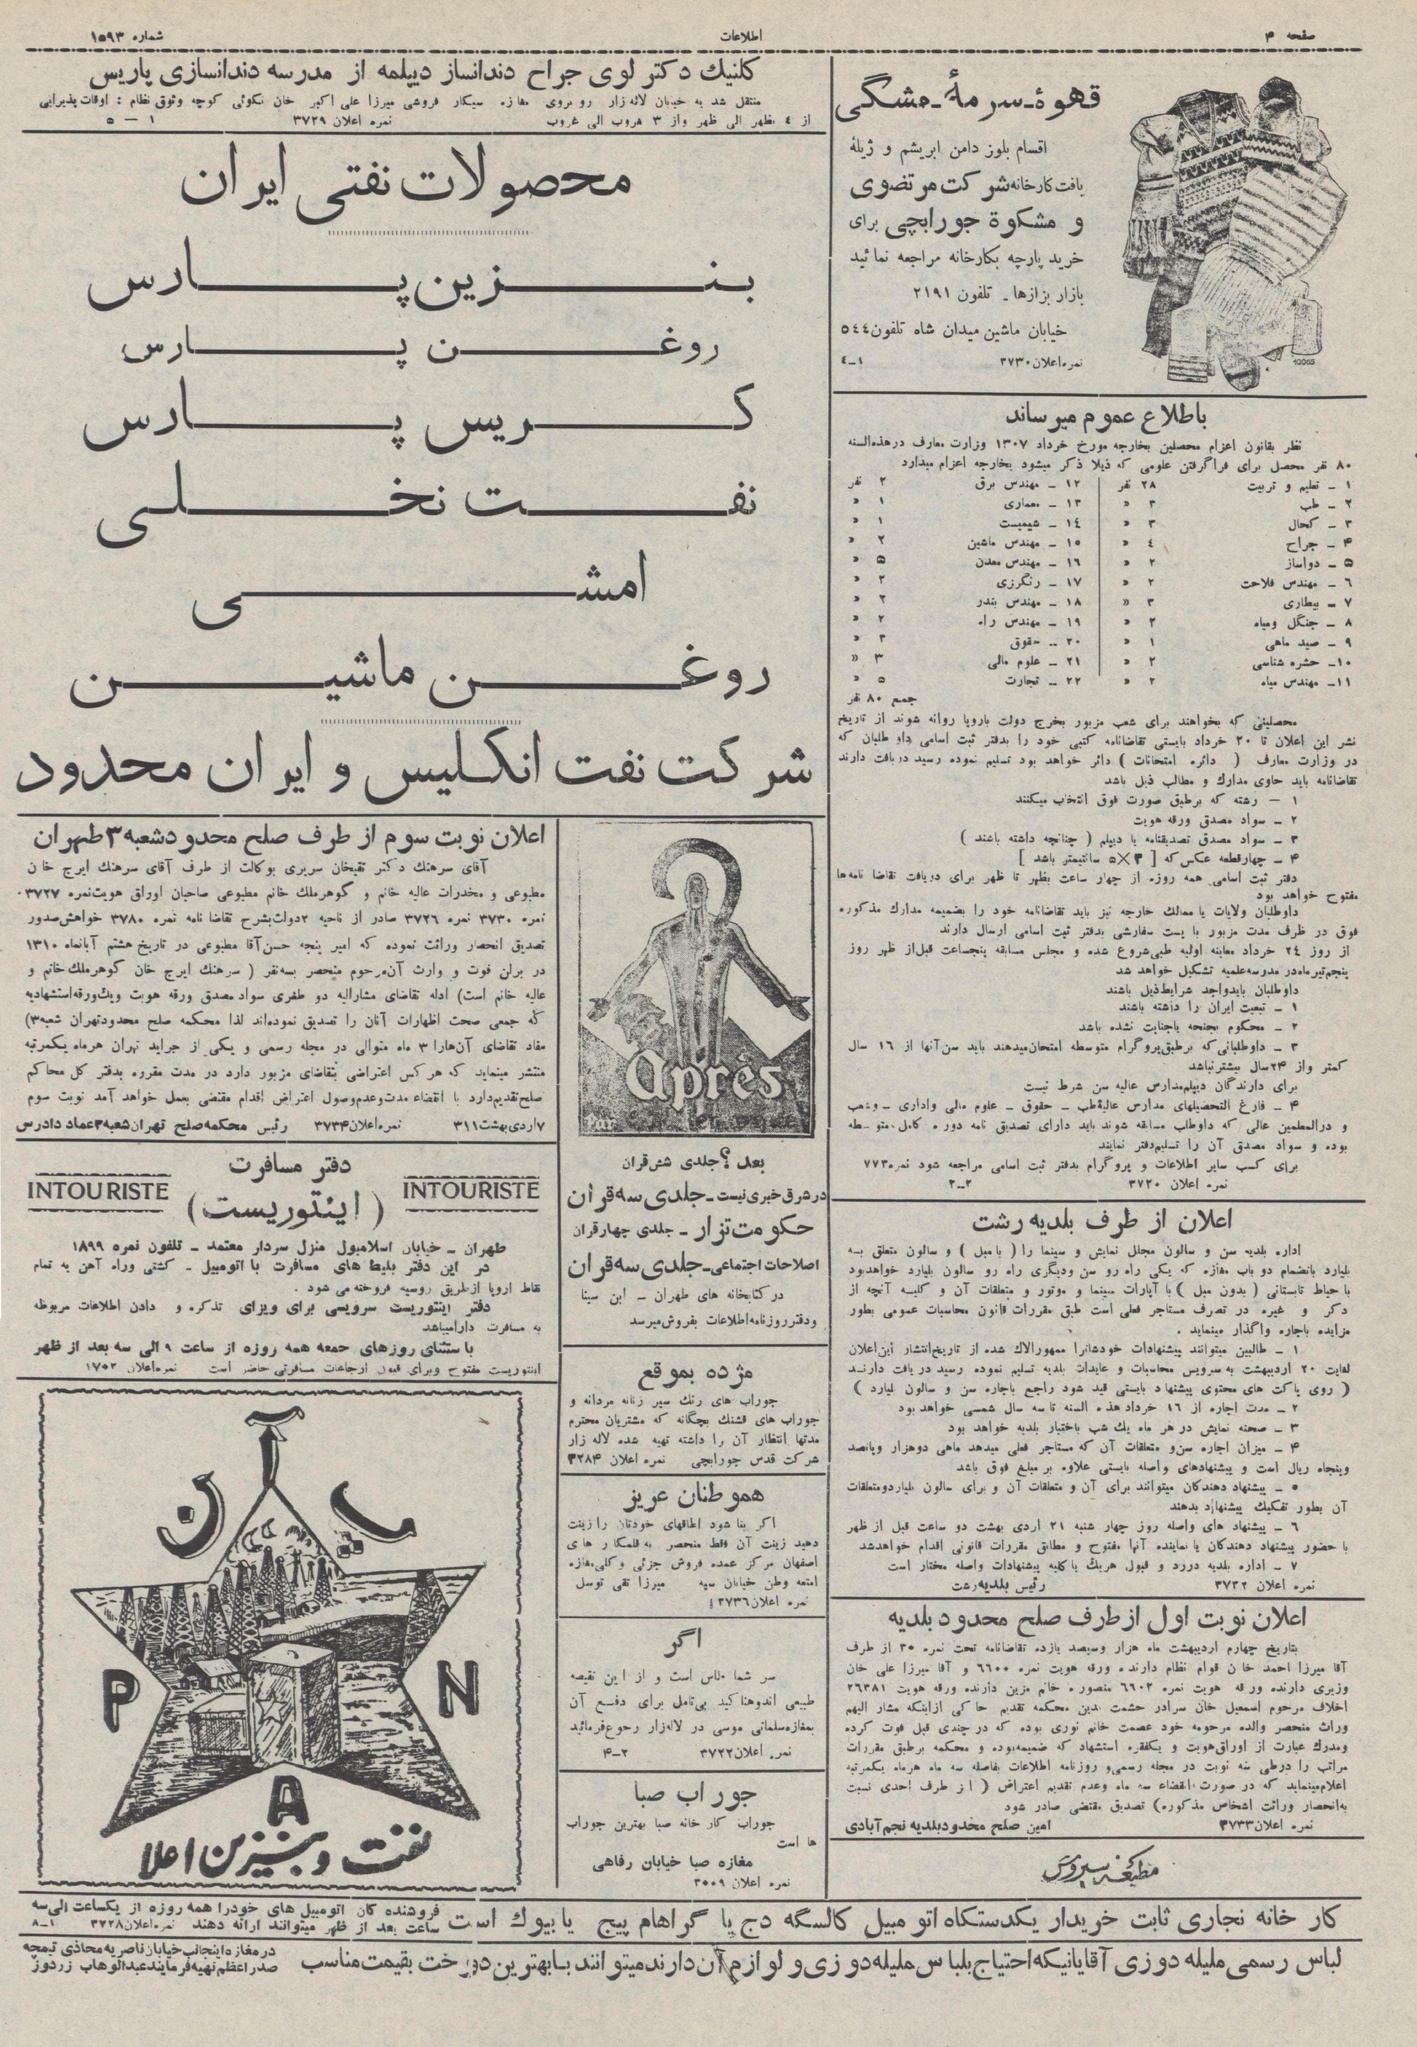 صفحه ۴
اطلاعات
شماره ۱۵۹۳
قهوهٔ-سرمهٔ-مشگی
اقسام بلوز دامن ابریشم و ژیلهٔ
بافت کارخانه شرکت مرتضوی
و مشکوة جورابچی برای
خرید پارچه بکارخانه مراجعه نمائید
بازار بزازها - تلفون ۲۱۹۱
خیابان ماشین میدان شاه تلفون ۵۴۴
نمره اعلان ۳۷۳۰ ۱-۴
باطلاع عموم میرساند
نظر بقانون اعزام محصلین بخارجه مورخ خرداد ۱۳۰۷ وزارت معارف در هذه‌السنه
۸۰ نفر محصل برای فراگرفتن علومی که ذیلا ذکر میشود بخارجه اعزام میدارد
۱ - تعلیم و تربیت ۲۸ نفر
۲ - طب ۳ «
۳ - کحال ۳ «
۴ - جراح ۴ «
۵ - دواساز ۲ «
۶ - مهندس فلاحت ۲ «
۷ - بیطاری ۳ «
۸ - جنگل ومیاه ۲ «
۹ - صید ماهی ۱ «
۱۰- حشره شناسی ۲ «
۱۱- مهندس میاه ۲ «
۱۲ - مهندس برق ۲ نفر
۱۳ - معماری ۱ «
۱۴ - شیمیست ۱ «
۱۵ - مهندس ماشین ۲ «
۱۶ - مهندس معدن ۵ «
۱۷ - رنگرزی ۲ «
۱۸ - مهندس بندر ۲ «
۱۹ - مهندس راه ۲ «
۲۰ - حقوق «
۲۱ - علوم مالی ۳ «
۲۲ - تجارت ۵ «
جمع ۸۰ نفر
محصلینی که بخواهند برای شعب مزبور بخرج دولت باروپا روانه شوند از تاریخ
نشر این اعلان تا ۲۰ خرداد بایستی تقاضانامه کتبی خود را بدفتر ثبت اسامی داوطلبان که
در وزارت معارف ( دائره امتحانات ) دائر خواهد بود تسلیم نموده رسید دریافت دارند
تقاضانامه باید حاوی مدارک و مطالب ذیل باشد
۱ - رشته که برطبق صورت فوق انتخاب میکنند
۲ - سواد مصدق ورقه هویت
۳ - سواد مصدق تصدیقنامه یا دیپلم ( چنانچه داشته باشند )
۴ - چهارقطعه عکس که [ ۳×۵ سانتیمتر باشد ]
دفتر ثبت اسامی همه روزه از چهار ساعت بظهر تا ظهر برای دریافت تقاضانامه‌ها
مفتوح خواهد بود
داوطلبان ولایات یا ممالک خارجه نیز باید تقاضانامه خود را بضمیمه مدارک مذکوره
فوق در ظرف مدت مزبور با پست سفارشی بدفتر ثبت اسامی ارسال دارند
از روز ۲۴ خرداد معاینه اولیه طبی شروع شده و مجلس مسابقه پنجساعت قبل از ظهر روز
پنجم تیرماه در مدرسه علمیه تشکیل خواهد شد
داوطلبان باید واجد شرایط ذیل باشند
۱ - تبعیت ایران را داشته باشند
۲ - محکوم بجنحه یاجنایت نشده باشد
۳ - داوطلبانی که برطبق پروگرام متوسطه امتحان میدهند باید سن آنها از ۱۶ سال
کمتر واز ۲۴ سال بیشتر نباشد
برای دارندگان دیپلم مدارس عالیه سن شرط نیست
۴ - فارغ التحصیلهای مدارس عالیهٔ طب - حقوق - علوم مالی واداری - وشعب
و درالمعلمین عالی که داوطلب مسابقه شوند باید دارای تصدیق نامه دوره کامل متوسطه
بوده و سواد مصدق آن را تسلیم دفتر نمایند
برای کسب سایر اطلاعات و پروگرام بدفتر ثبت اسامی مراجعه شود نمره ۷۷۳
نمره اعلان ۳۷۲۰ ۲-۲
اعلان از طرف بلدیه رشت
اداره بلدیه سن و سالون مجلل نمایش و سینما را ( بامبل ) و سالون متعلق به
بلیارد بانضمام دو باب مغازه که یکی راه رو سن ودیگری راه رو سالون بلیارد خواهدبود
با حیاط تابستانی ( بدون مبل ) با آپارات سینما و موتور و متعلقات آن و کلیه آنچه از
دکر و غیره در تصرف مستاجر فعلی است طبق مقررات قانون محاسبات عمومی بطور
مزایده باجاره واگذار مینماید .
۱ - طالبین میتوانند پیشنهادات خودشانرا ممهورالاک شده از تاریخ انتشار این اعلان
لغایت ۲۰ اردیبهشت به سرویس محاسبات و عایدات بلدیه تسلیم نموده رسید دریافت دارند
( روی پاکت های محتوی پیشنهاد بایستی قید شود راجع باجاره سن و سالون بلیارد )
۲ - مدت اجاره از ۱۶ خرداد هذه السنه تا سه سال شمسی خواهد بود
۳ - صحنه نمایش در هر ماه یک شب باختیار بلدیه خواهد بود
۴ - میزان اجاره سن و متعلقات آن که مستاجر فعلی میدهد ماهی دوهزار وپانصد
وپنجاه ریال است و پیشنهادهای واصله بایستی علاوه بر مبلغ فوق باشد
۵ - پیشنهاد دهندکان میتوانند برای آن و متعلقات آن و برای سالون بلیارد ومتعلقات
آن بطور تفکیک پیشنهاد بدهند
۶ - پیشنهاد های واصله روز چهار شنبه ۲۱ اردی بهشت دو ساعت قبل از ظهر
با حضور پیشنهاد دهندکان یا نماینده آنها مفتوح و مطابق مقررات قانونی اقدام خواهدشد
۷ - اداره بلدیه دررد و قبول هریک یا کلیه پیشنهادات واصله مختار است
نمره اعلان ۳۷۳۲ رئیس بلدیه رشت
اعلان نوبت اول از طرف صلح محدود بلدیه
بتاریخ چهارم اردیبهشت ماه هزار وسیصد یازده تقاضانامه تحت نمره ۳۵ از طرف
آقا میرزا احمد خان قوام نظام دارنده ورقه هویت نمره ۶۶۰۰ و آقا میرزا علی خان
وزیری دارنده ورقه هویت نمره ۶۶۰۲ منصوره خانم مزین دارنده ورقه هویت ۲۶۳۸۱
اخلاف مرحوم اسمعیل خان سرادر حشمت بدین محکمه تقدیم حاکی ازاینکه مشار الیهم
وراث منحصر والده مرحومه خود عصمت خانم نوری بوده که در چندی قبل فوت کرده
ومدرک عبارت از اوراق هویت و یکفقره استشهاد که ضمیمه بوده و محکمه برطبق مقررات
مراتب را درطی سه نوبت در مجله رسمی و روزنامه اطلاعات بفاصله سه ماه هرماه یکمرتبه
اعلام مینماید که در صورت انقضاء سه ماه وعدم تقدیم اعتراض ( از طرف احدی نسبت
به انحصار وراثت اشخاص مذکوره ) تصدیق مقتضی صادر شود
نمره اعلان ۳۷۳۳ امین صلح محدود بلدیه نجم آبادی
مطبعه سیروس
کلنیک دکتر لوی جراح دندانساز دیپلمه از مدرسه دندانسازی پاریس
منتقل شد به خیابان لاله زار روبروی مغازه سیکار فروشی میرزا علی اکبر خان نکوئی کوچه وثوق نظام : اوقات پذیرایی
از ۴ بظهر الی ظهر واز ۳ بغروب الی غروب نمره اعلان ۳۷۲۹ ۱ - ۵
محصولات نفتی ایران
بنزین پارس
روغن پارس
کریس پارس
نفت نخلی
امشی
روغن ماشین
شرکت نفت انکلیس و ایران محدود
اعلان نوبت سوم از طرف صلح محدود شعبه ۳ طهران
آقای سرهنک دکتر تقیخان سریری بوکالت از طرف آقای سرهنک ایرج خان
مطبوعی و مخدرات عالیه خانم و گوهرملک خانم مطبوعی صاحبان اوراق هویت نمره ۳۷۲۷۰
نمره ۳۷۳۰ نمره ۳۷۲۶ صادر از ناحیه ۲ دولت بشرح تقاضا نامه نمره ۳۷۸۰ خواهش صدور
تصدیق انحصار وراثت نموده که امیر پنجه حسن آقا مطبوعی در تاریخ هشتم آبانماه ۱۳۱۰
در برلن فوت و وارث آن مرحوم منحصر بسه نفر ( سرهنک ایرج خان گوهرملک خانم و
عالیه خانم است) ادله تقاضای مشارالیه دو طغری سواد مصدق ورقه هویت ویک ورقه استشهادیه
که جمعی صحت اظهارات آنان را تصدیق نموده‌اند لذا محکمه صلح محدود تهران شعبه ۳)
مفاد تقاضای آن‌هارا ۳ ماه متوالی در مجله رسمی و یکی از جراید تهران هرماه یکمرتبه
منتشر مینماید که هرکس اعتراضی بتقاضای مزبور دارد در مدت مقرره بدفتر کل محاکم
صلح تقدیم دارد با انقضاء مدت وعدم وصول اعتراض اقدام مقتضی بعمل خواهد آمد نوبت سوم
۷ اردی بهشت ۳۱۱ نمره اعلان ۳۷۳۴ رئیس محکمه صلح تهران شعبه ۳ عماد دادرس
دفتر مسافرت
INTOURISTE (اینتوریست) INTOURISTE
طهران - خیابان اسلامبول منزل سردار معتمد - تلفون نمره ۱۸۹۹
در این دفتر بلیط های مسافرت با اتومبیل - کشتی وراه آهن به تمام
نقاط اروپا از طریق روسیه فروخته می شود .
دفتر اینتوریست سرویسی برای ویزای تذکره و دادن اطلاعات مربوطه
به مسافرت دارامیباشد
باستثنای روزهای جمعه همه روزه از ساعت ۹ الی سه بعد از ظهر
اینتوریست مفتوح وبرای قبول ارجاعات مسافرتی حاضر است نمره اعلان ۱۷۰۲
پرسیان
P
N
A
نفت و بنزین اعلا
Après
بعد ؟ جلدی شش قران
در شرق خبری نیست - جلدی سه قران
حکومت تزار - جلدی چهار قران
اصلاحات اجتماعی - جلدی سه قران
در کتابخانه های طهران - ابن سینا
ودفتر روزنامه اطلاعات بفروش میرسد
مژده بموقع
جوراب های رنک سیر زنانه مردانه و
جوراب های قشنک بچگانه که مشتریان محترم
مدتها انتظار آن را داشته تهیه شده لاله زار
شرکت قدس جورابچی نمره اعلان ۳۲۸۴
هموطنان عزیز
اکر بنا شود اطاقهای خودتان را زینت
دهید زینت آن فقط منحصر به قلمکار های
اصفهان مرکز عمده فروش جزئی و کلی مغازه
امتعه وطن خیابان سپه میرزا تقی توسل
نمره اعلان ۳۷۳۶
اگر
سر شما طاس است و از این نقیصه
طبیعی اندوهناکید بی‌تامل برای دفع آن
بمغازه سلمانی موسی در لاله زار رجوع فرمائید
نمره اعلان ۳۷۲۲ ۲-۴
جوراب صبا
جوراب کار خانه صبا بهترین جوراب
ها است
مغازه صبا خیابان رفاهی
نمره اعلان ۳۰۰۹
کار خانه نجاری ثابت خریدار یکدستگاه اتومبیل کالسگه دج یا گراهام پیج یا بیوک است
فروشنده کان اتومبیل های خودرا همه روزه از یکساعت الی سه
ساعت بعد از ظهر میتوانند ارائه دهند نمره اعلان ۳۷۲۸ ۱-۸
لباس رسمی ملیله دوزی آقایانیکه احتیاج بلباس ملیله دوزی و لوازم آن دارند میتوانند با بهترین دوخت بقیمت مناسب
در مغازه اینجانب خیابان ناصریه محاذی تیمچه
صدراعظم تهیه فرمایند عبدالوهاب زردوز